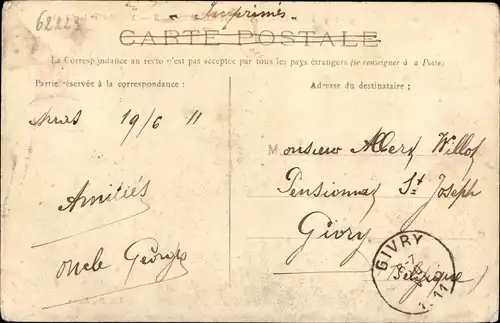 62223
- Imprimés -
CARTE POSTALE
La Correspondance au recto n'est pas acceptée par tous les pays étrangers (se renseigner à la Poste)
Partie réservée à la correspondance :
19/6 11
Amitiés
oncle Georges
Adresse du destinataire :
Monsieur Albert Willot
Pensionnat St Joseph
Givry
Belgique
GIVRY